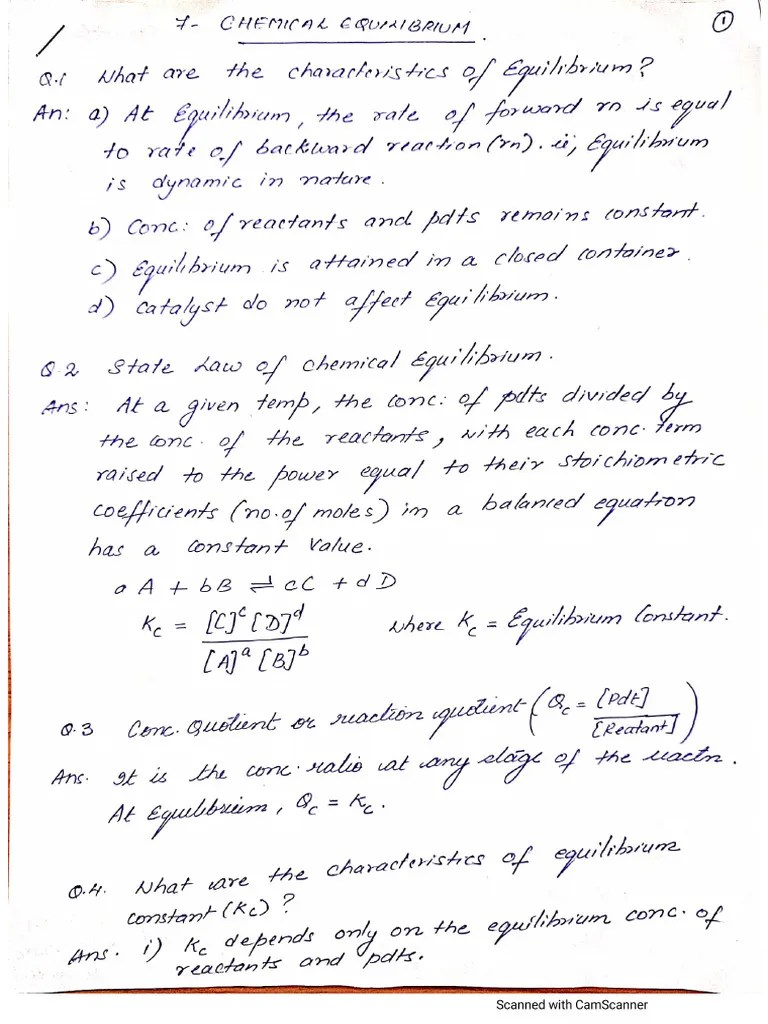 7- CHEMICAL EQUILIBRIUM.
1
Q.1 What are the characteristics of Equilibrium?
An: a) At Equilibrium, the rate of forward rn is equal
to rate of backward reaction (rn). ie, Equilibrium
is dynamic in nature.
b) Conc: of reactants and pdts remains constant.
c) Equilibrium is attained in a closed container.
d) Catalyst do not affect Equilibrium.
Q.2 State Law of chemical Equilibrium.
Ans: At a given temp, the conc: of pdts divided by
the conc. of the reactants, with each conc. term
raised to the power equal to their stoichiometric
coefficients (no. of moles) in a balanced equation
has a constant value.
aA + bB ⇌ cC + dD
Kc = [C]^c [D]^d / [A]^a [B]^b where Kc = Equilibrium Constant.
Q.3 Conc. Quotient or reaction quotient (Qc = [Pdt] / [Reatant])
Ans. It is the conc. ratio at any stage of the reactn.
At Equilibrium, Qc = Kc.
Q.4. What are the characteristics of equilibrium
constant (Kc) ?
Ans. i) Kc depends only on the equilibrium conc. of
reactants and pdts.
Scanned with CamScanner